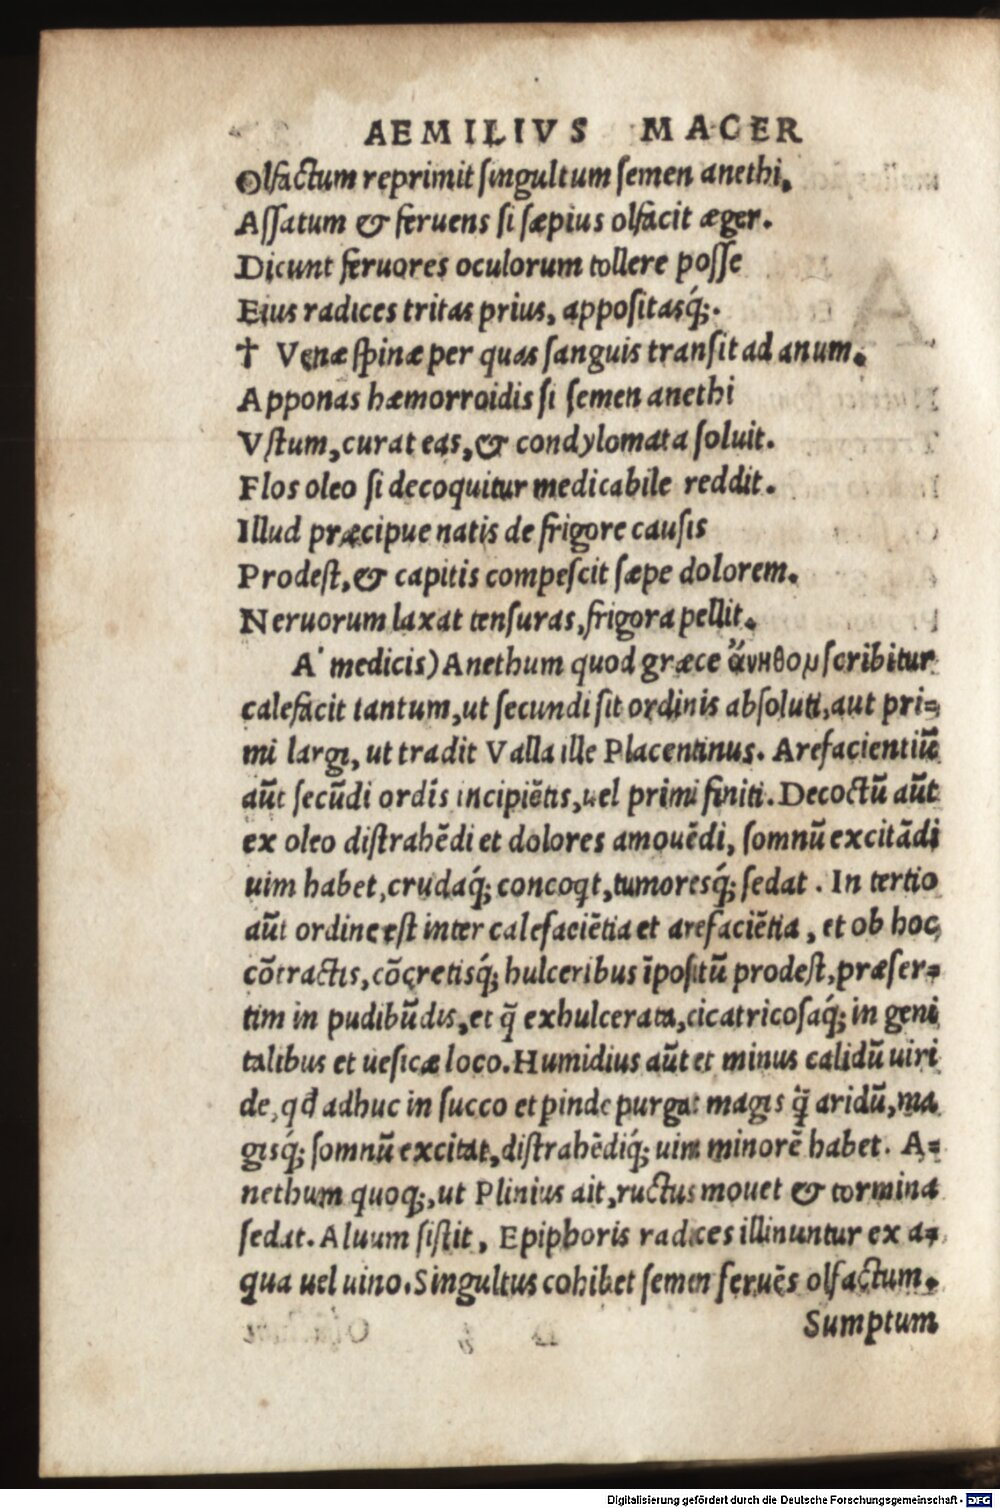 AEMILIVS MACER
Olfactum reprimit singultum semen anethi.
Assatum & feruens si sæpius olfacit æger.
Dicunt feruores oculorum tollere posse
Eius radices tritas prius, appositasq́;.
† Venæ spinæ per quas sanguis transit ad anum.
Apponas hæmorroidis si semen anethi
Vstum, curat eas, & condylomata soluit.
Flos oleo si decoquitur medicabile reddit.
Illud præcipue natis de frigore causis
Prodest, & capitis compescit sæpe dolorem.
Neruorum laxat tensuras, frigora pellit.
A' medicis) Anethum quod græce ἄνηθομ scribitur
calefacit tantum, ut secundi sit ordinis absoluti, aut pri=
mi largi, ut tradit Valla ille Placentinus. Arefacientiũ
aũt secũdi ordĩs incipiẽtis, uel primi finiti. Decoctũ aũt
ex oleo distrahẽdi et dolores amouẽdi, somnũ excitãdi
uim habet, crudaq́; concoqt, tumoresq́; sedat. In tertio
aũt ordine est inter calefaciẽtia et arefaciẽtia, et ob hoc
cõtractis, cõcretisq́; hulceribus ĩpositũ prodest, præser=
tim in pudibũdis, et q̃ exhulcerata, cicatricosaq́; in geni
talibus et uesicæ loco. Humidius aũt et minus calidũ uiri
de, qđ adhuc in succo et pinde purgat magis q̃ aridũ, ma
gisq́; somnũ excitat, distrahẽdiq́; uim minorẽ habet. A=
nethum quoq;, ut Plinius ait, ructus mouet & tormina
sedat. Aluum sistit, Epiphoris radices illinuntur ex a=
qua uel uino. Singultus cohibet semen feruẽs olfactum.
Sumptum
Digitalisierung gefördert durch die Deutsche Forschungsgemeinschaft - DFG